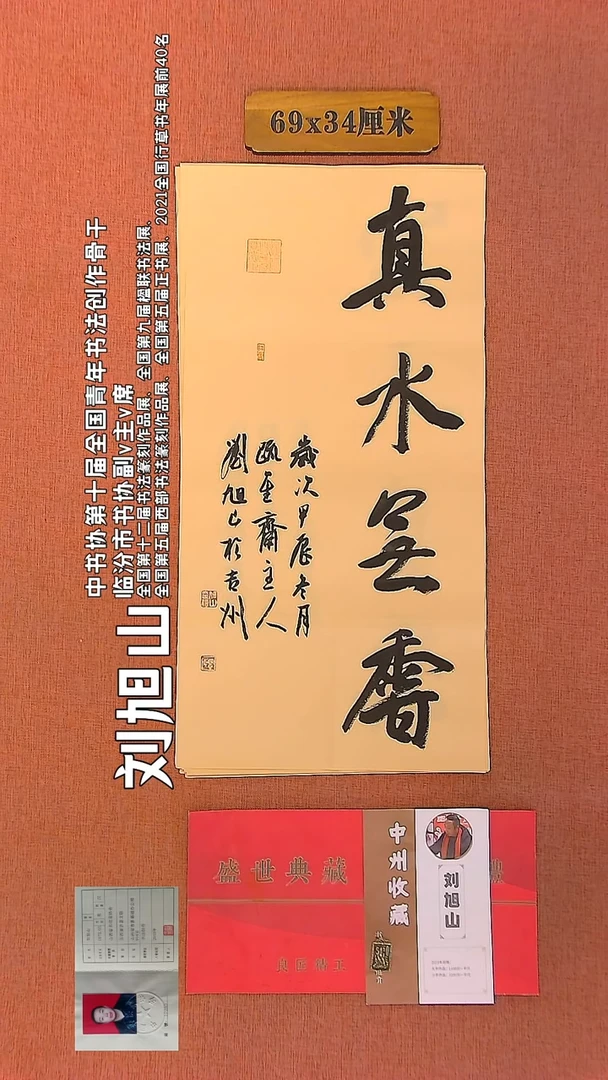 69x34厘米
真水無香
歲次甲辰冬月
甌 齋主人
劉旭山於吉州
刘旭山
中书协第十届全国青年书法创作骨干
临汾市书协副v主v席
全国第十二届书法篆刻作品展、全国第九届楹联书法展、
全国第五届西部书法篆刻作品展、全国第五届正书展、2021全国行草书年展前40名
盛世典藏
良匠精工
中州收藏
刘旭山